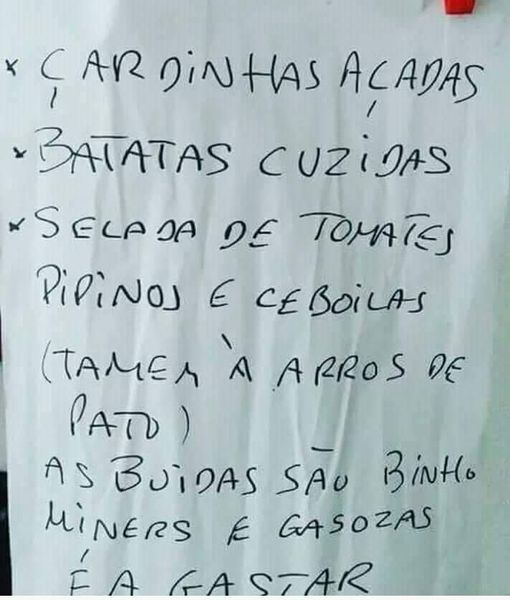 * ÇARDINHAS AÇADAS
* BATATAS CUZIDAS
* SELADA DE TOMATES
PIPINOS E CEBOILAS
(TAMEM À ARROS DE
PATO)
AS BUIDAS SÃO BINHO
MINERS E GASOZAS
É A GASTAR